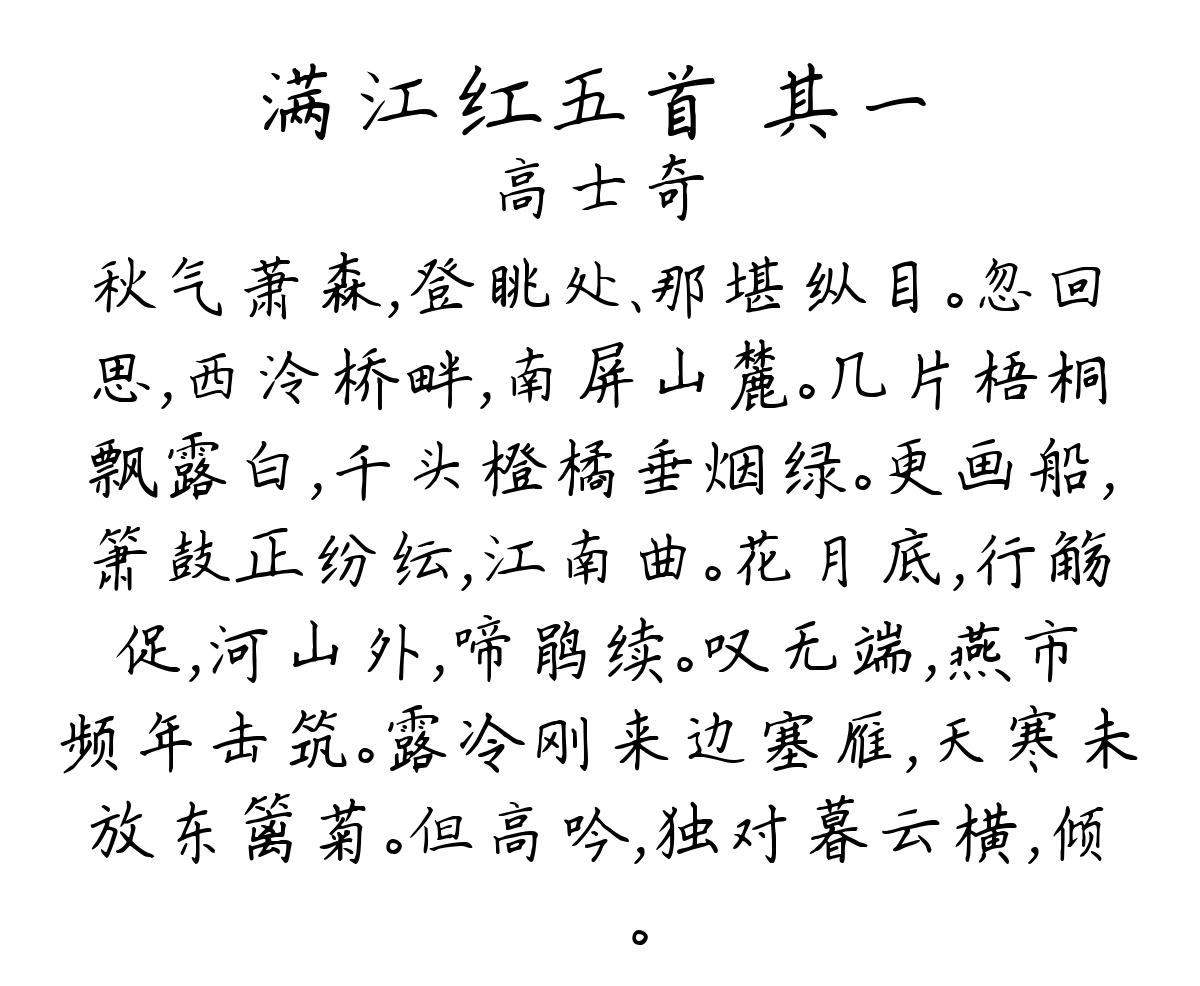 满江红五首 其一
高士奇
秋气萧森,登眺处、那堪纵目。忽回
思,西泠桥畔,南屏山麓。几片梧桐
飘露白,千头橙橘垂烟绿。更画船,
箫鼓正纷纭,江南曲。花月底,行觞
促,河山外,啼鹃续。叹无端,燕市
频年击筑。露冷刚来边塞雁,天寒未
放东篱菊。但高吟,独对暮云横,倾
。